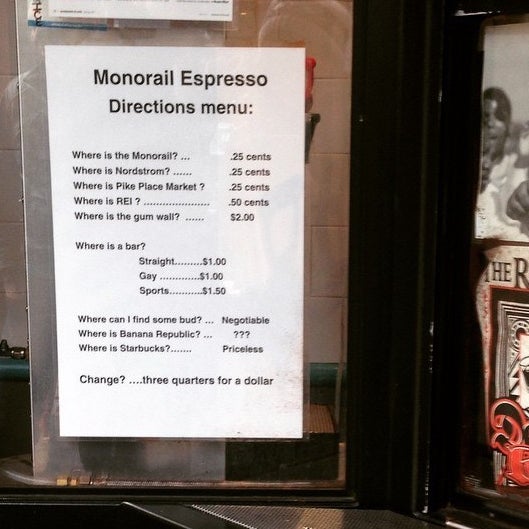 Monorail Espresso
Directions menu:
Where is the Monorail? ... .25 cents
Where is Nordstrom? ...... .25 cents
Where is Pike Place Market ? .25 cents
Where is REI ? ..................... .50 cents
Where is the gum wall? ...... $2.00
Where is a bar?
Straight.........$1.00
Gay .............$1.00
Sports...........$1.50
Where can I find some bud? ... Negotiable
Where is Banana Republic? ... ???
Where is Starbucks?....... Priceless
Change? ....three quarters for a dollar
THE